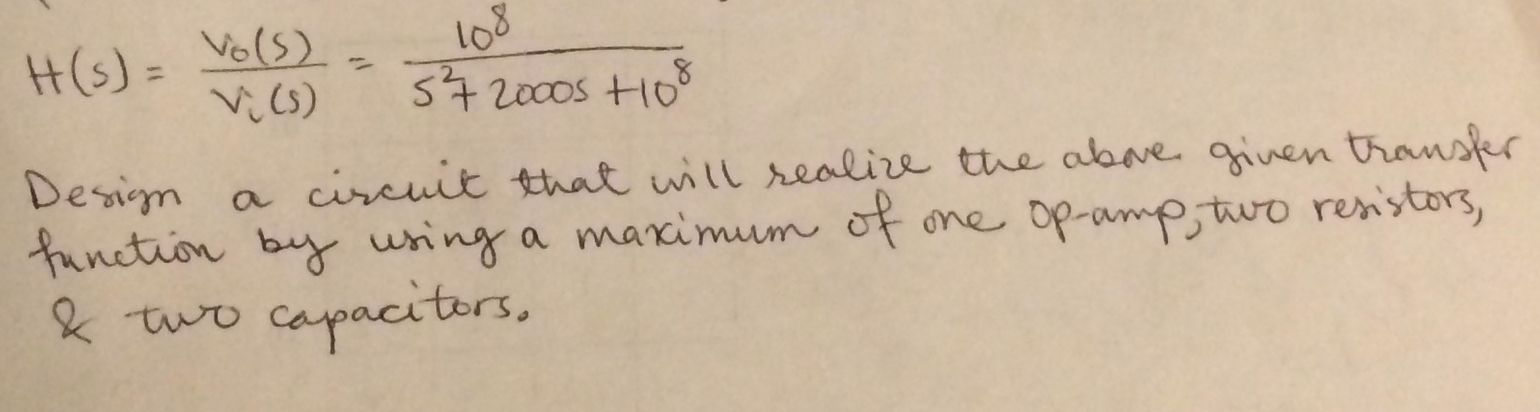 H(s) = Vo(s)/Vi(s) = 10^8/(s^2 + 2000s + 10^8)
Design a circuit that will realize the above given transfer
function by using a maximum of one op-amp, two resistors,
& two capacitors.